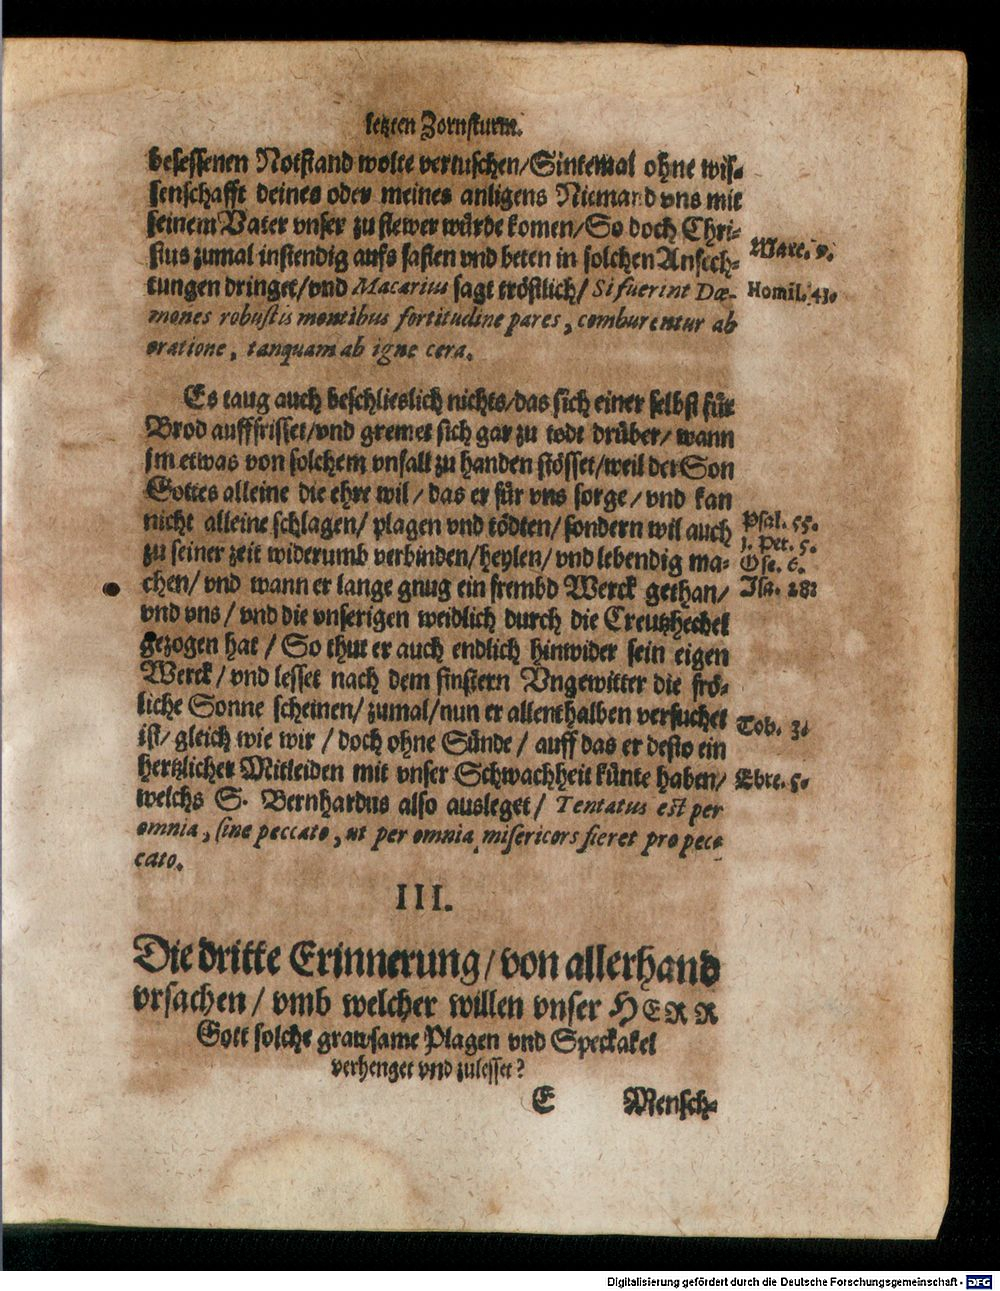 letzten Zornsturm.
besessenen Notstand wolte vertuschen/Sintemal ohne wis-
senschafft deines oder meines anligens Niemand vns mit
seinem Vater vnser zu stewer würde komen/So doch Chri-
stus zumal instendig auffs fasten vnd beten in solchen Anfech-
Marc. 9.
tungen dringet/vnd Macarius sagt tröstlich/ Si fuerint Dæ-
Homil. 43.
mones robustis montibus fortitudine pares, comburentur ab
oratione, tanquam ab igne cera.
Es taug auch beschlieslich nichts/das sich einer selbst für
Brod aufffrisset/vnd gremet sich gar zu todt drüber/wann
jm etwas von solchem vnfall zu handen stösset/weil der Son
Gottes alleine die ehre wil/das er für vns sorge/vnd kan
nicht alleine schlagen/plagen vnd tödten/sondern wil auch
Psal. 55.
1. Pet. 5.
zu seiner zeit widerumb verbinden/heylen/vnd lebendig ma-
Ose. 6.
chen/vnd wann er lange gnug ein frembd Werck gethan/
Isa. 28:
vnd vns/vnd die vnserigen weidlich durch die Creutzhechel
gezogen hat/So thut er auch endlich hinwider sein eigen
Werck/vnd lesset nach dem finstern Vngewitter die frö-
liche Sonne scheinen/zumal/nun er allenthalben versuchet
Tob. 3.
ist/gleich wie wir/doch ohne Sünde/auff das er desto ein
hertzlicher Mitleiden mit vnser Schwachheit künte haben/
Ebre. 5.
welchs S. Bernhardus also ausleget/ Tentatus est per
omnia, sine peccato, ut per omnia misericors fieret pro pec-
cato.
III.
Die dritte Erinnerung/von allerhand
vrsachen/vmb welcher willen vnser HERR
Gott solche grawsame Plagen vnd Speckakel
verhenget vnd zulesset?
E Mensch-
Digitalisierung gefördert durch die Deutsche Forschungsgemeinschaft - DFG